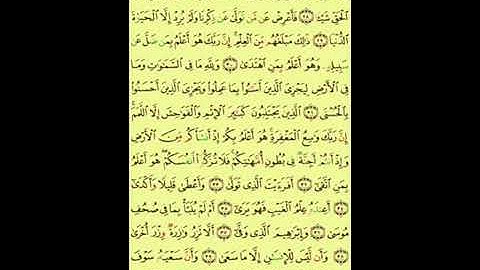 الْحَقِّ شَيْئًا ﴿٢٨﴾ فَأَعْرِضْ عَن مَّن تَوَلَّىٰ عَن ذِكْرِنَا وَلَمْ يُرِدْ إِلَّا الْحَيَاةَ
الدُّنْيَا ﴿٢٩﴾ ذَٰلِكَ مَبْلَغُهُم مِّنَ الْعِلْمِ إِنَّ رَبَّكَ هُوَ أَعْلَمُ بِمَن ضَلَّ عَن
سَبِيلِهِ وَهُوَ أَعْلَمُ بِمَنِ اهْتَدَىٰ ﴿٣٠﴾ وَلِلَّهِ مَا فِي السَّمَاوَاتِ وَمَا
فِي الْأَرْضِ لِيَجْزِيَ الَّذِينَ أَسَاءُوا بِمَا عَمِلُوا وَيَجْزِيَ الَّذِينَ أَحْسَنُوا
بِالْحُسْنَى ﴿٣١﴾ الَّذِينَ يَجْتَنِبُونَ كَبَائِرَ الْإِثْمِ وَالْفَوَاحِشَ إِلَّا اللَّمَمَ
إِنَّ رَبَّكَ وَاسِعُ الْمَغْفِرَةِ هُوَ أَعْلَمُ بِكُمْ إِذْ أَنشَأَكُم مِّنَ الْأَرْضِ
وَإِذْ أَنتُمْ أَجِنَّةٌ فِي بُطُونِ أُمَّهَاتِكُمْ فَلَا تُزَكُّوا أَنفُسَكُمْ هُوَ أَعْلَمُ
بِمَنِ اتَّقَىٰ ﴿٣٢﴾ أَفَرَأَيْتَ الَّذِي تَوَلَّىٰ ﴿٣٣﴾ وَأَعْطَىٰ قَلِيلًا وَأَكْدَىٰ
﴿٣٤﴾ أَعِندَهُ عِلْمُ الْغَيْبِ فَهُوَ يَرَىٰ ﴿٣٥﴾ أَمْ لَمْ يُنَبَّأْ بِمَا فِي صُحُفِ
مُوسَىٰ ﴿٣٦﴾ وَإِبْرَاهِيمَ الَّذِي وَفَّىٰ ﴿٣٧﴾ أَلَّا تَزِرُ وَازِرَةٌ وِزْرَ أُخْرَىٰ
﴿٣٨﴾ وَأَن لَّيْسَ لِلْإِنسَانِ إِلَّا مَا سَعَىٰ ﴿٣٩﴾ وَأَنَّ سَعْيَهُ سَوْفَ